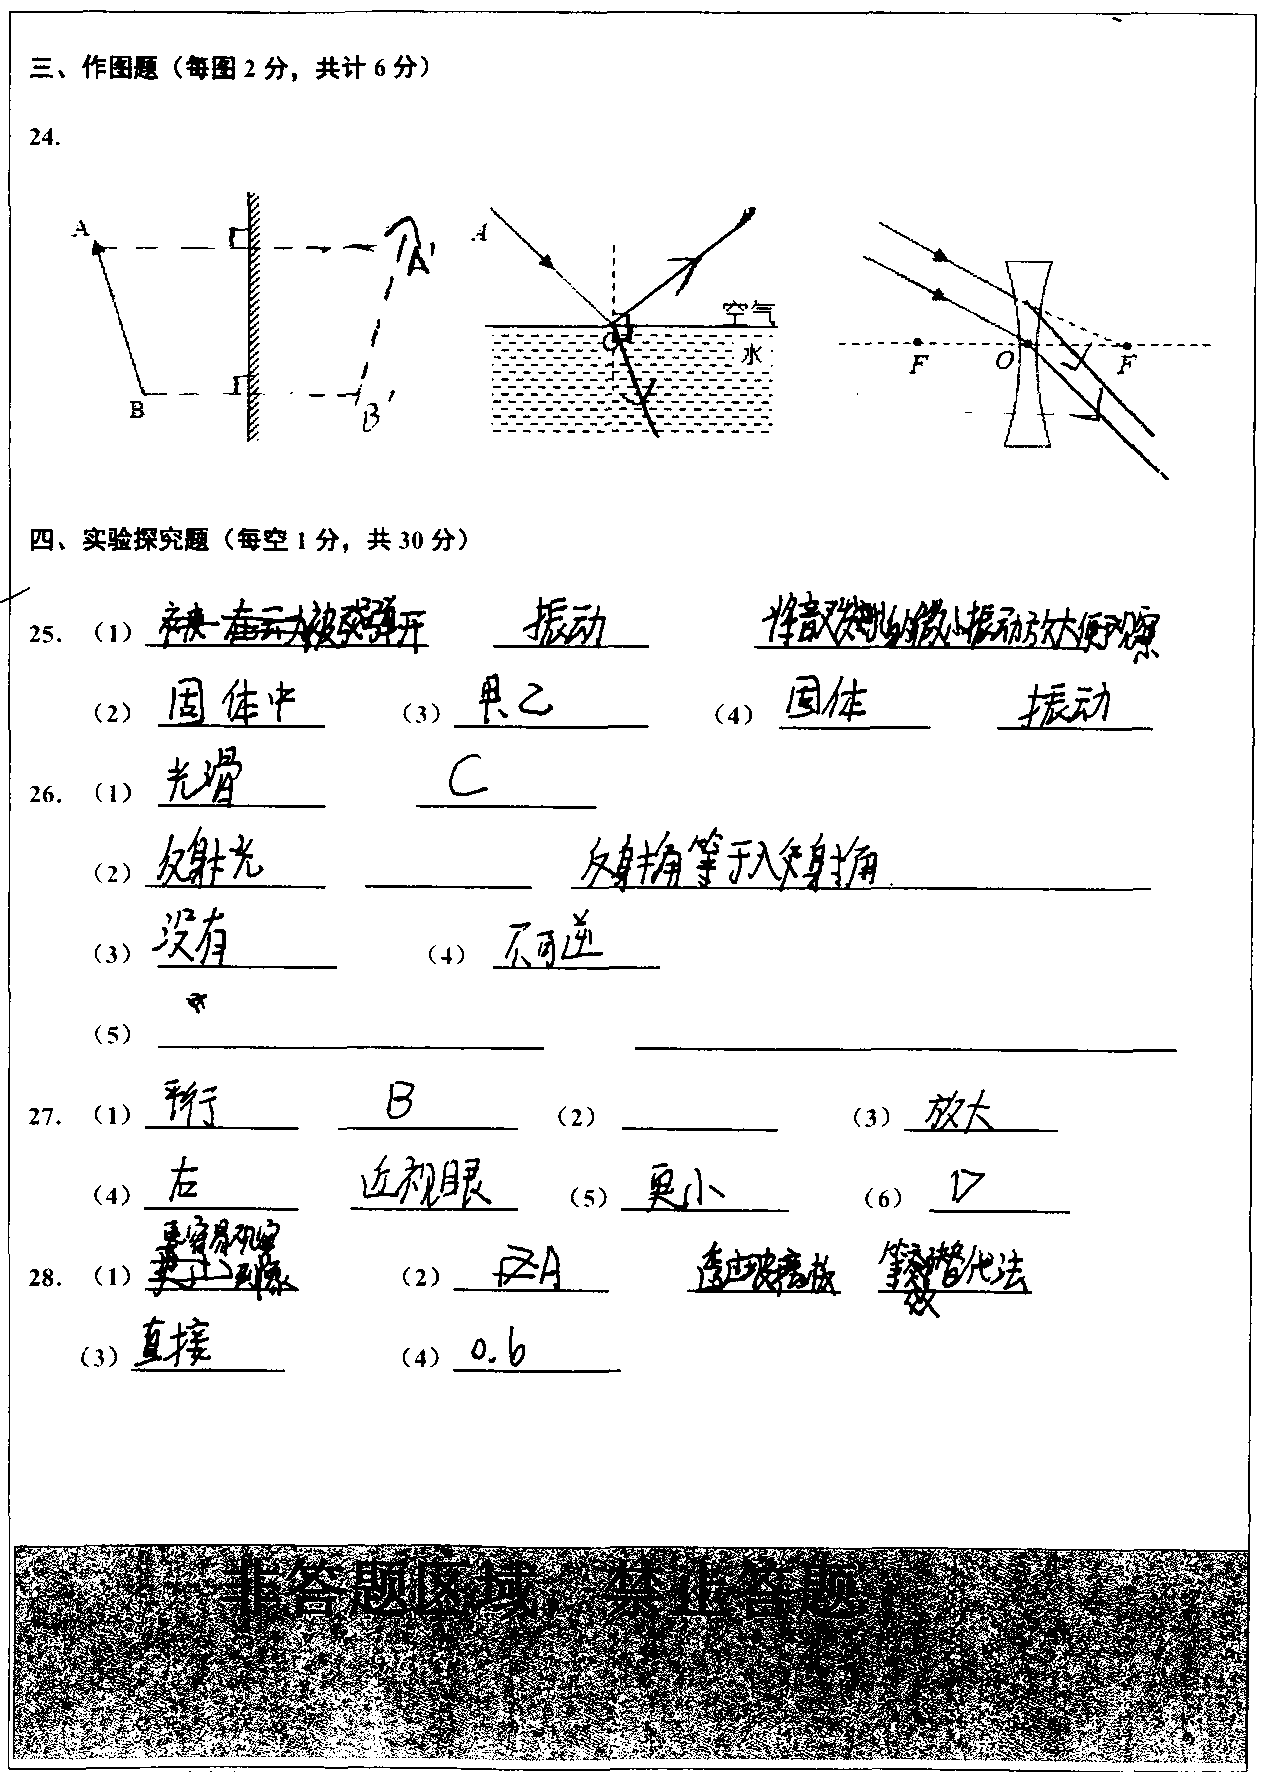 三、作图题（每图 2 分，共计 6 分）
24.
A A'
B B'
A O 空气 水
F O F
四、实验探究题（每空 1 分，共 30 分）
25. （1） 被弹开 振动 将音叉的微小振动放大便观察
（2） 固体中 （3） 甲乙 （4） 固体 振动
26. （1） 光滑 C
（2） 反射光 反射角等于入射角
（3） 没有 （4） 不可逆
（5）
27. （1） 平行 B （2） （3） 放大
（4） 右 近视眼 （5） 更小 （6） D
28. （1） 更容易观察到像 （2） A 透应玻离板 等效替代法
（3） 直接 （4） 0.6
非答题区域，禁止答题